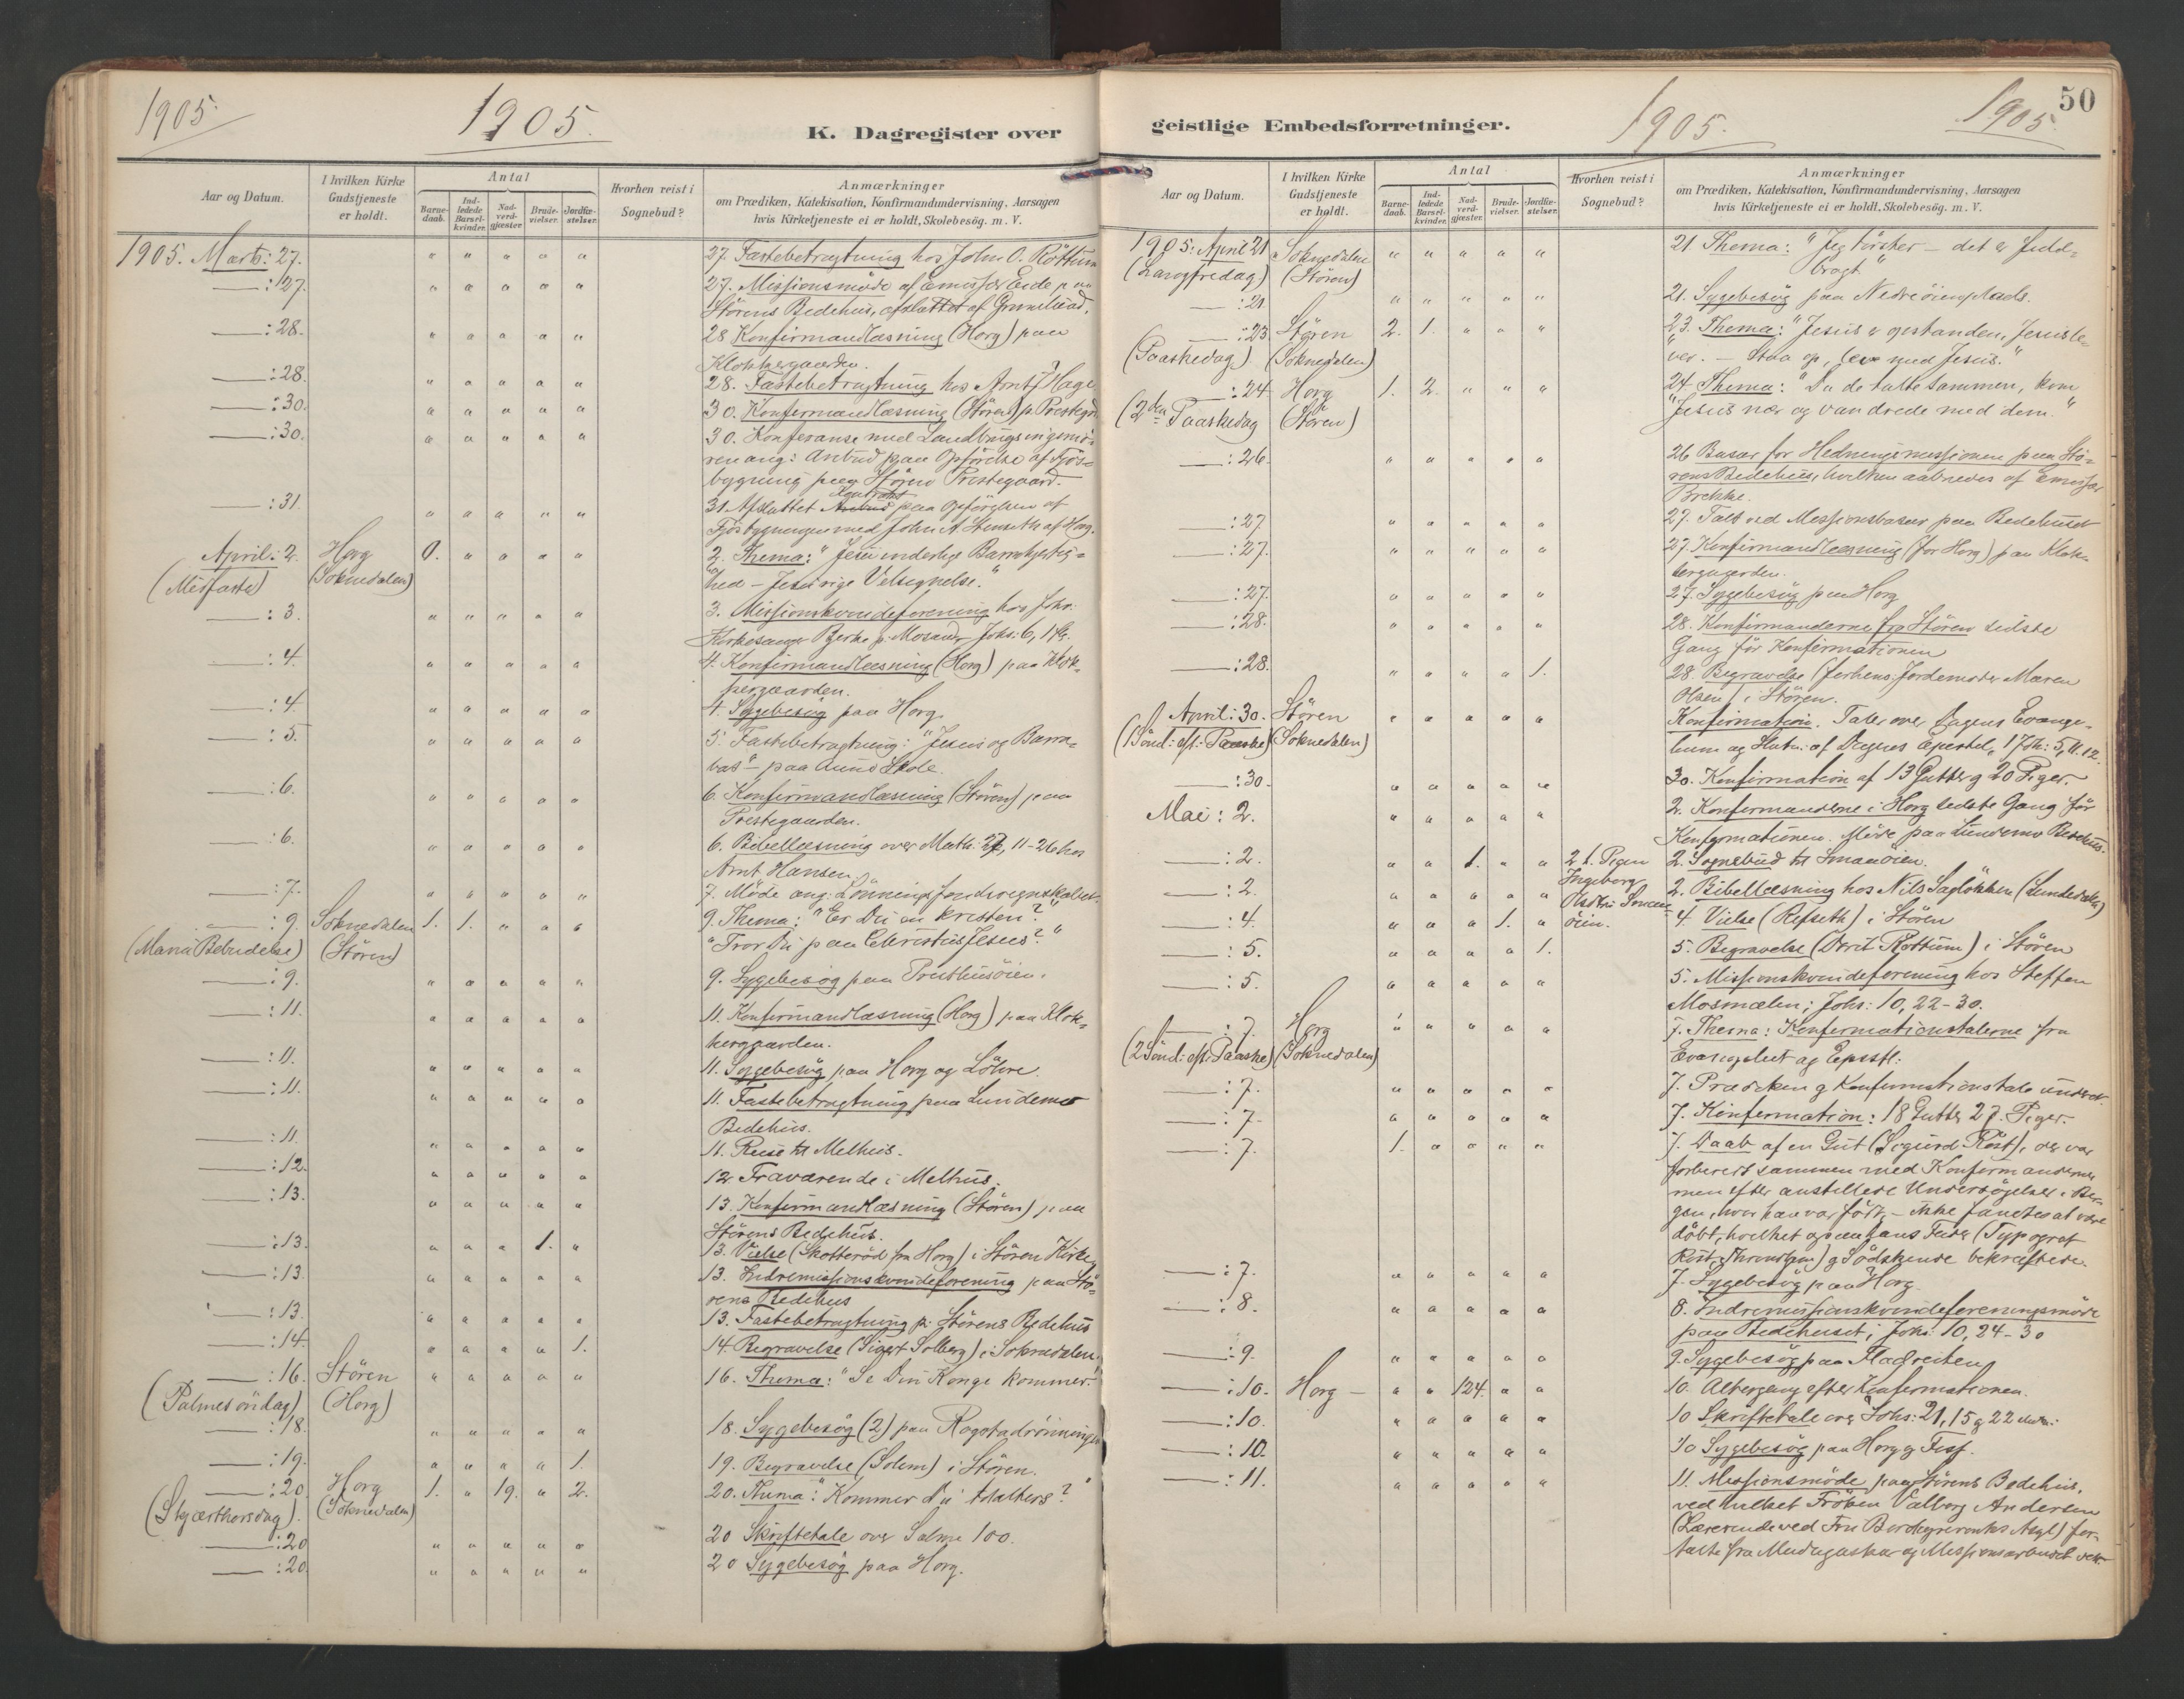 1905.
1905.
K. Dagregister over
Aar og Datum.
I hvilken Kirke Gudstjeneste er holdt.
Antal
Barnedaab.
Indledede Barselkvinder.
Nadverdgjæster
Brudevielser.
Jordfæstelser.
Hvorhen reist i Sognebud?
Anmærkninger
om Prædiken, Katekisation, Konfirmandundervisning, Aarsagen
hvis Kirketjeneste ei er holdt, Skolebesög. m. V.
1905. Marts: 27. " " " " " 27. Fastebetragtning hos John O. Röttum
: 27. " " " " " 27. Missionsmöde af Emissær Eide paa
Störens Bedehus, afsluttet af
: 28. " " " " " 28 Konfirmandlæsning (Horg) paa
Klokkergaarden.
: 28. " " " " " 28. Fastebetragtning hos Arnt J Hage
: 30. " " " " " 30. Konfirmandlæsning (Stören) p. Prestegrd
: 30. " " " " " 30. Konferanse med Landbrugsingeniö-
ren ang: Anbud paa Opförelse af Fjös-
bygning paa Stören Prestegaard.
: 31. " " " " " 31. Afsluttet Kontrakt paa Opförelsen af
Fjösbygningen med John A. af Horg.
April: 2. Horg 0. " " " " 2. Thema: "Jesu inderlige Barmhjertig-
(Midfaste) (Soknedalen) hed – Jesu rige Velsignelse."
: 3. " " " " " 3. Missionskvindeforening hos fhv.
Kirkesanger Bjerke p. Mosand, Johs: 6, 1 fg.
: 4. " " " " " 4. Konfirmandlæsning (Horg) paa Klok-
kergaarden.
: 4. " " " " " 4. Sygebesög paa Horg.
: 5. " " " " " 5. Fastebetragtning: "Jesus og Barra-
bas" – paa Aunö Skole.
: 6. " " " " " 6. Konfirmandlæsning (Stören) paa
Prestegaarden.
: 6. " " " " " 6. Bibellæsning over Math: 27, 11-26 hos
Arnt Hansen.
: 7. " " " " " 7. Möde ang: Lönningsfondsregnskabet.
: 9. Soknedalen 1. 1. " " " 9. Thema: "Er Du en kristen?"
(Mariæ Bebudelse) (Stören) "Tror Du paa Christus Jesus?"
: 9. " " " " " 9. Sygebesög paa Presthusöien.
: 11. " " " " " 11. Konfirmandlæsning (Horg) paa Klok-
kergaarden.
: 11. " " " " " 11. Sygebesög paa Horg og Löhre.
: 11. " " " " " 11. Fastebetragtning paa Lundemo
Bedehus.
: 11. " " " " " 11. Reise til Melhus.
: 12. " " " " " 12. Fraværende i Melhus.
: 13. " " " " " 13. Konfirmandlæsning (Stören) paa
Störens Bedehus.
: 13. " " " 1. " 13. Vielse (Skotteröd fra Horg) i Stören Kirke
: 13. " " " " " 13. Indremissionskvindeforening paa Stö-
rens Bedehus
: 13. " " " " " 13. Fastebetragtning p. Störens Bedehus
: 14. " " " " 1. 14. Begravelse (Sigert Solberg) i Soknedalen.
: 16. Stören " " " " " 16. Thema: "Se Din Konge kommer."
(Palmesöndag) (Horg)
: 18. " " " " " 18. Sygebesög (2) paa
: 19. " " " " 1. 19. Begravelse (Solem) i Stören.
: 20. Horg 1. " 19. " 2. 20. Thema: "Kommer Du til alters?"
(Skjærthorsdag). (Soknedalen)
: 20 " " " " " 20 Skriftetale over Salme 100.
: 20. " " " " " 20 Sygebesög paa Horg.
50
1905.
1905.
geistlige Embedsforretninger.
Aar og Datum.
I hvilken Kirke Gudstjeneste er holdt.
Antal
Barnedaab.
Indledede Barselkvinder.
Nadverdgjæster.
Brudevielser.
Jordfæstelser.
Hvorhen reist i Sognebud?
Anmærkninger
om Prædiken, Katekisation, Konfirmandundervisning, Aarsagen
hvis Kirketjeneste ei er holdt, Skolebesög. m. V.
1905: April 21 Soknedalen " " " " " 21. Thema: "Jeg törster – det er fuld-
(Langfredag) (Stören) bragt"
: 21. " " " " " 21. Sygebesög paa Nedreöienplads.
: 23. Stören 2. 1. " " " 23. Thema: "Jesus er opstanden, Jesus le-
(Paaskedag) (Soknedalen) ver. – Staa op, lev med Jesus."
: 24. Horg 1. 2. " " " 24. Thema: "Da de talte sammen, kom
(2den Paaskedag (Stören) Jesus nær og vandrede med dem."
: 26. " " " " " 26 Basar for Hedningemissionen paa Stö-
rens Bedehus, hvilken aabnedes af Emissær
Brekke.
: 27 " " " " " 27. Tale ved Missionsbasar paa Bedehuset
: 27. " " " " " 27. Konfirmandlæsning (for Horg) paa Klok-
kergaarden.
: 27. " " " " " 27. Sygebesög paa Horg
: 28. " " " " " 28. Konfirmanderne fra Stören sidste
Gang för Konfirmationen
: 28. " " " " 1. 28. Begravelse (forhens Jordemoder Maren
Olsen) i Stören.
April: 30. Stören " " " " " Konfirmation. Taler over Dagens Evange-
(1Sönd: eft: Paaske) (Soknedalen) lium og Slutn: af Dagens Epistel, 1 Joh: 5, 11. 12.
: 30. " " " " " 30. Konfirmation af 13 Gutter og 20 Piger.
Mai: 2. " " " " " 2. Konfirmanderne i Horg sidste Gang för
Konfirmationen. Möde paa Lundemo Bedehus.
: 2. " " 1. " " 2.1. Pigen Ingeborg öien. 2. Sognebud til Smaaöien.
: 2. " " " " " 2. Bibellæsning hos Nils Saglökken (Lundedalen)
: 4. " " " 1. " 4. Vielse (Refseth) i Stören
: 5. " " " " 1. 5. Begravelse (Röttum) i Stören
: 5. " " " " " 5. Missionskvindeforening hos Steffen
Mosmælen; Johs: 10, 22-30.
: 7. Horg " " " " " 7. Thema: Konfirmationstalerne fra
(2Sönd: eft: Paaske) (Soknedalen) Evangeliet og Epistl.
: 7. " " " " " 7. Prædiken og Konfirmationstale
: 7. " " " " " 7. Konfirmation: 18 Gutter 27. Piger.
: 7. 1. " " " " 7. Daab af en Gut (Sigurd Röst), der var
forberedt sammen med Konfirmanderne,
men efter anstillede Undersögelser i Ber-
gen, hvor han var född, – ikke fandtes at være
döbt, hvilket ogsaa hans Fader (Typograf
Röst, Throndhjem) og Södskende bekræftede.
: 7. " " " " " 7. Sygebesög paa Horg.
: 8. " " " " " 8. Indremissionskvindeforeningsmöde
paa Bedehuset; Johs: 10, 24-30
: 9. " " " " " 9. Sygebesög paa Fladreiten
: 10. Horg – " " 124. " " 10. Altergang efter Konfirmationen.
: 10. " " " " " 10 Skriftetale over Johs: 21, 15 og 22
: 10. " " " " " 10 Sygebesög paa Horg og
: 11. " " " " " 11. Missionsmöde paa Störens Bedehus,
ved hvilket Fröken Valborg Andersen
(Lærerinde ved Fru Borchgrevinks Asyl) for-
talte fra Madagaskar og Missionsarbeidet